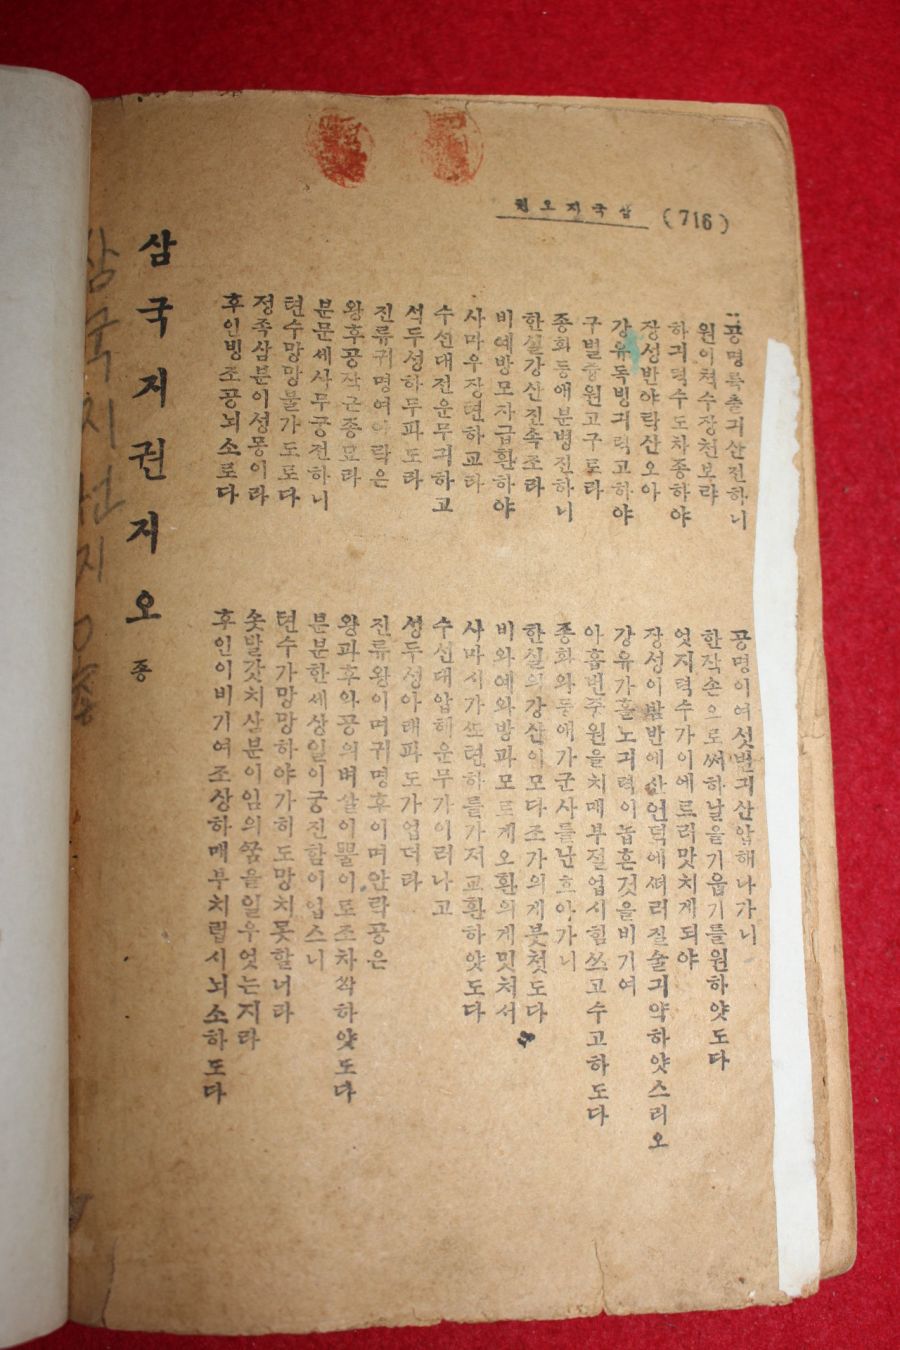 (716) 삼국지오권
공명륙출긔산전하니
원이쳑수장천보랴
하긔력수도차종하야
장성반야락산오아
강유독빙긔력고하야
구벌즁원고구로라
종회등애분병진하니
한실강산진속조라
비예방모자급환하야
사마우장텬하교라
수선대전운무긔하고
석두성하무파도라
진류귀명여아락은
왕후공작근종묘라
분문세사무궁전하니
텬수망망불가도로다
정족삼분이성몽이라
후인빙조공뇌소로다
공명이여섯번긔산압헤나가니
한작손으로써하날을기웁기를원하얏도다
엇지력수가이에르러맛치게되야
장성이밤반에산언덕에써러질술긔약하얏스리오
강유가홀노긔력이놉흔것을비기여
아홉번즁원을치매부절업시힘쓰고수고하도다
종회와등애가군사를난흐아가니
한실의강산이모다조가의게붓첫도다
비와예와방과모르게오환의게밋처서
사마시가또텬하를가저교환하얏도다
수선대압헤운무가이러나고
셩두성아래파도가업더라
진류왕이며귀명후이며안락공은
왕과후와공의벼살이뿔이로조차싹하얏도다
분분한세상일이궁진함이입스니
텬수가망망하야가히도망치못할너라
솟발갓치삼분이임의꿈을일우엇는지라
후인이비기여조상하매부치럽시뇌소하도다
삼국지권지오 종
삼국지권지오종